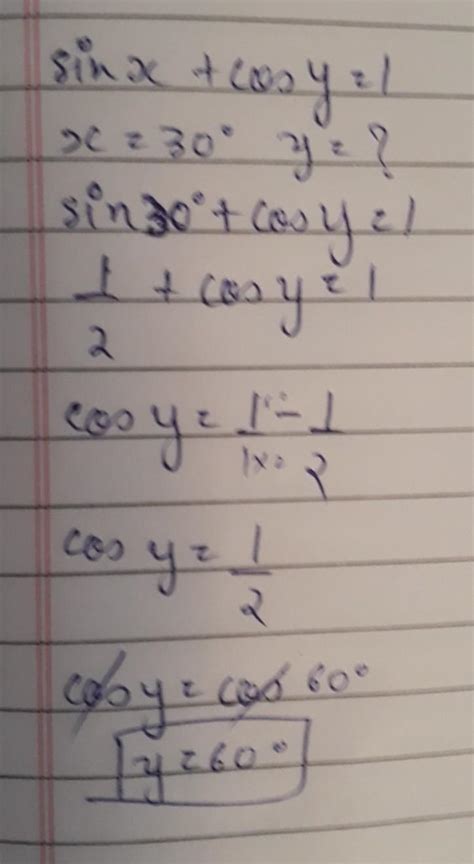 sin x + cos y = 1
x = 30° y = ?
sin 30° + cos y = 1
1/2 + cos y = 1
cos y = 1/1 - 1/2
cos y = 1/2
cos y = cos 60°
y = 60°